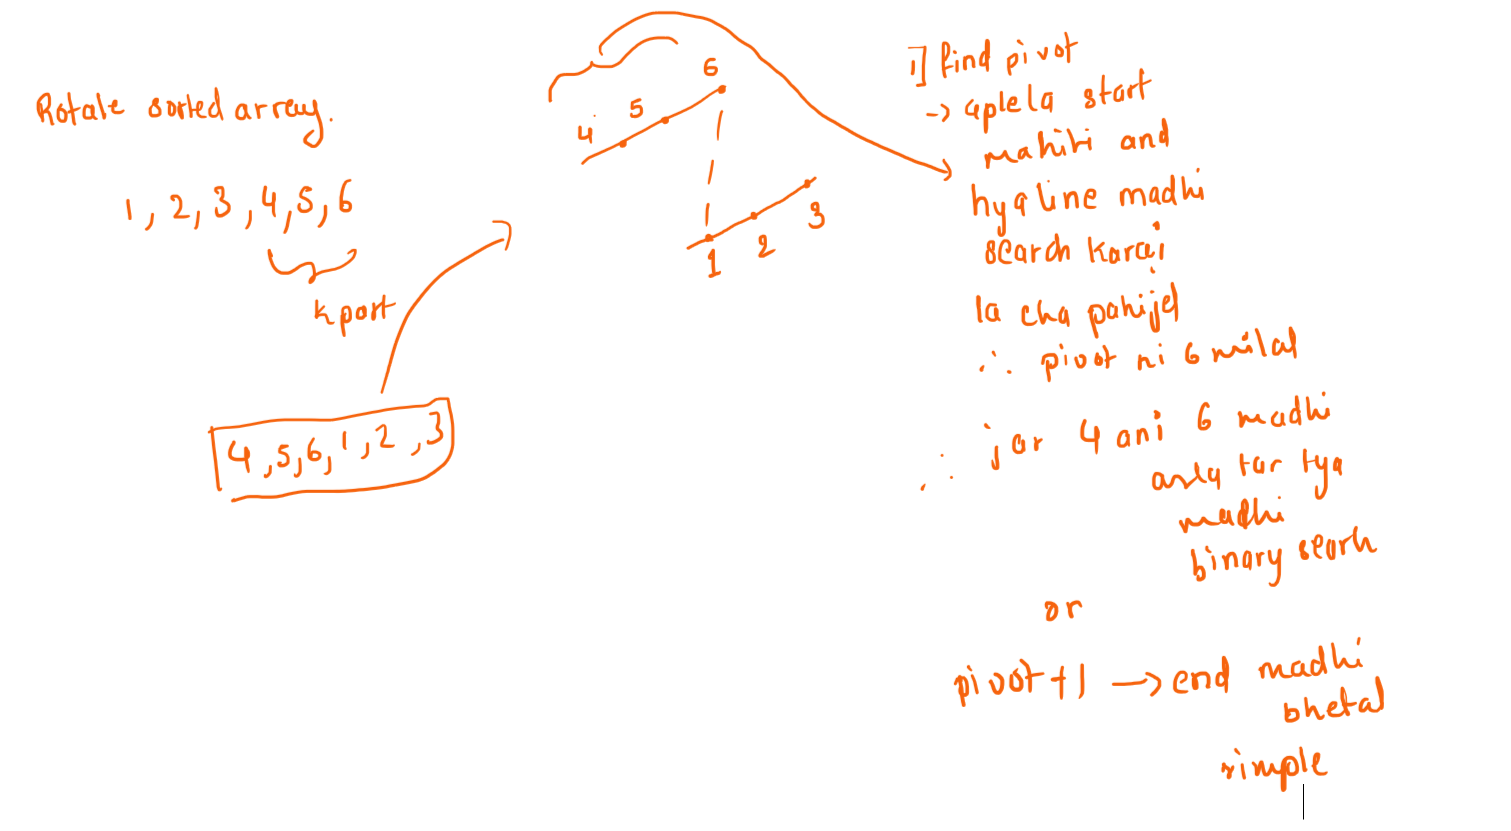 Rotate sorted array.
1, 2, 3, 4, 5, 6
k part
4, 5, 6, 1, 2, 3
4 5 6
1 2 3
1] find pivot
-> aplela start
mahiti and
hya line madhi
search karai
la cha pahijel
∴ pivot ni 6 milal
∴ jar 4 ani 6 madhi
asla tar tya
madhi
binary search
or
pivot+1 -> end madhi
bhetal
simple